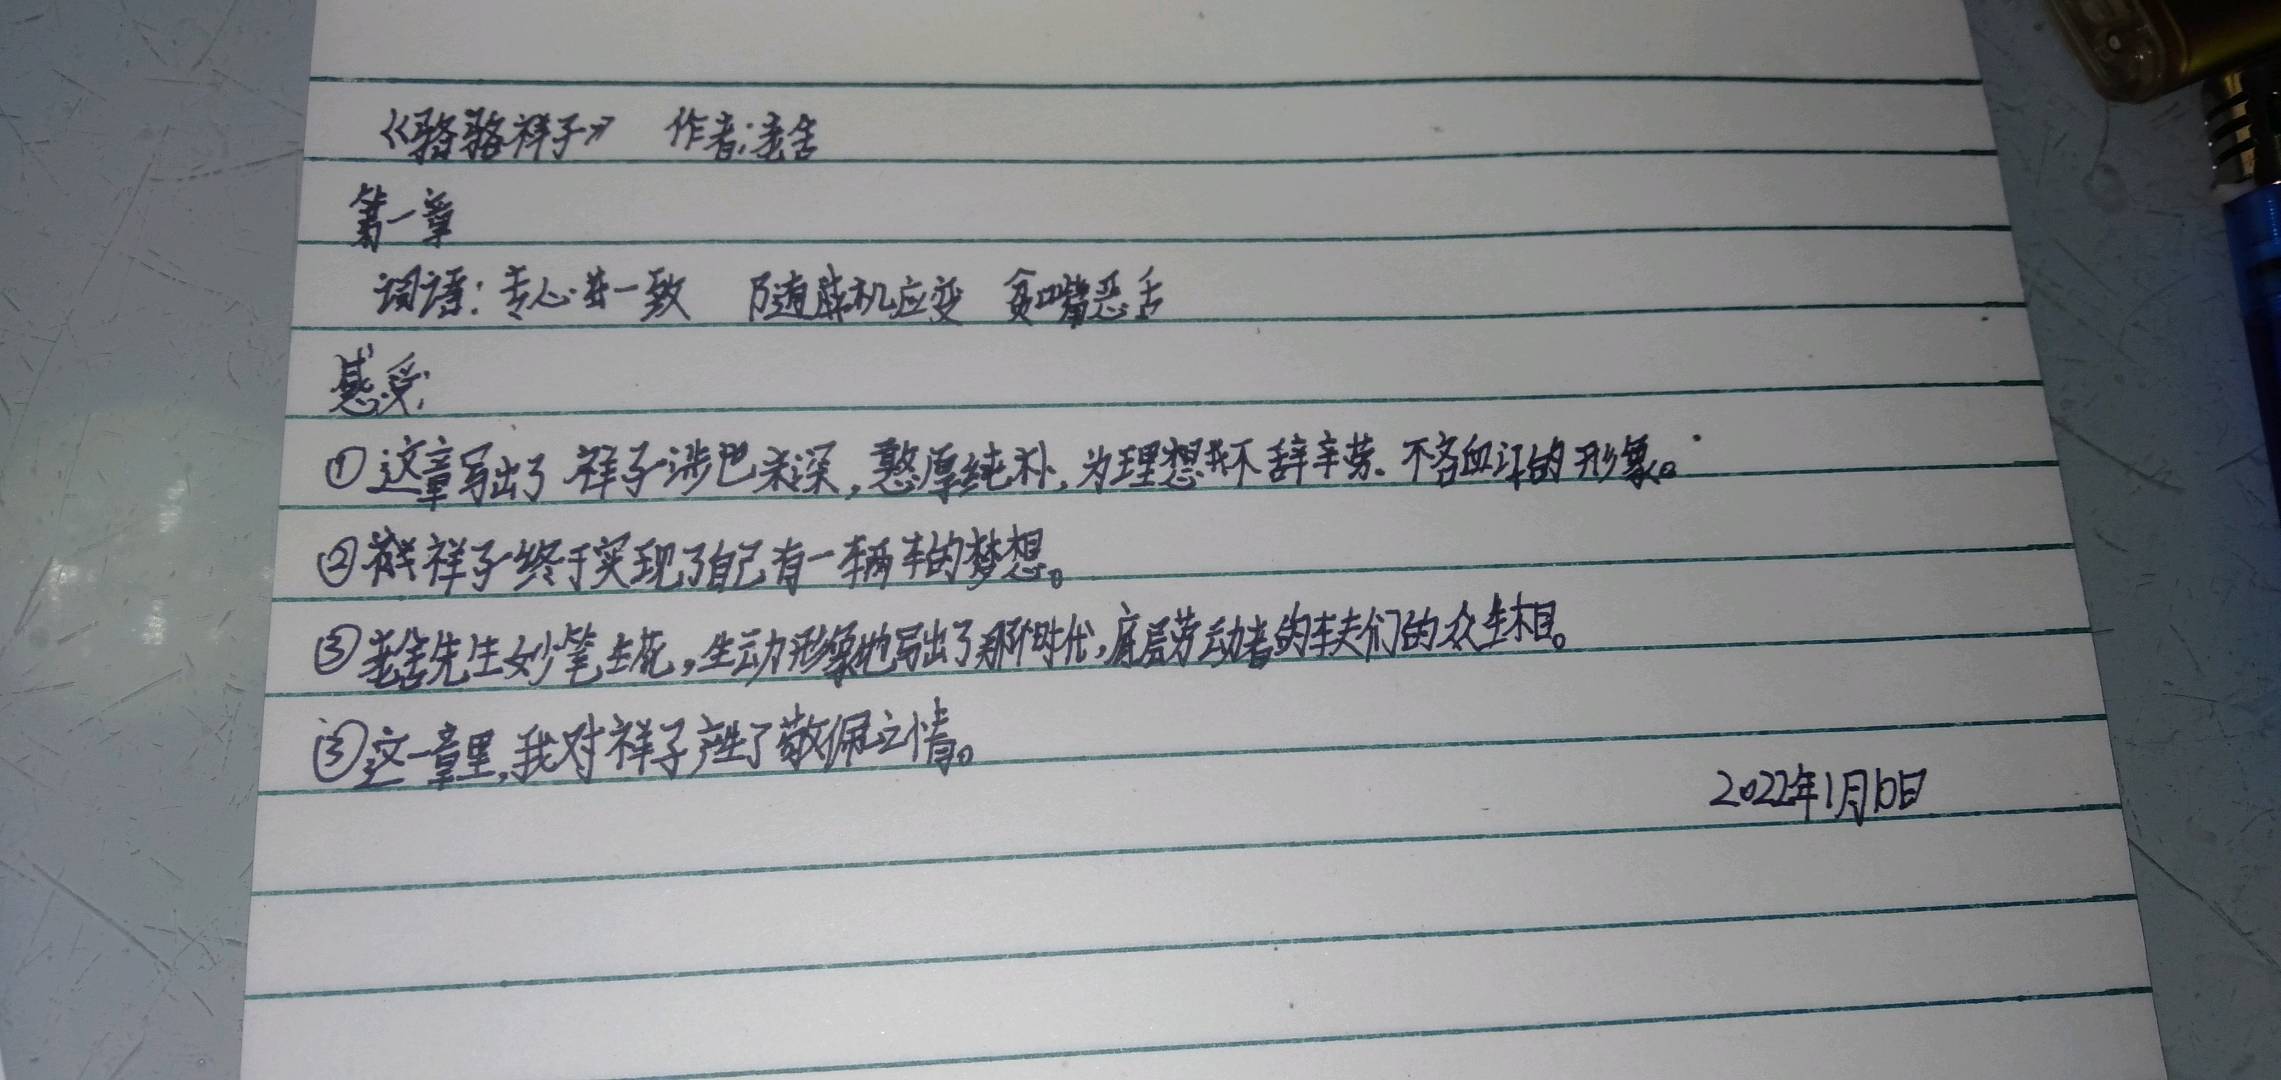 《骆驼祥子》 作者:老舍
第一章
词语:专心一致 随机应变 贫嘴恶舌
感受:
①这章写出了祥子涉世未深,憨厚纯朴,为理想不辞辛劳、不吝血汗的形象。
②祥子终于实现了自己有一辆车的梦想。
③老舍先生妙笔生花,生动形象地写出了那个时代,底层劳动者的车夫们的众生相。
③这一章里,我对祥子产生了敬佩之情。
2022年1月10日